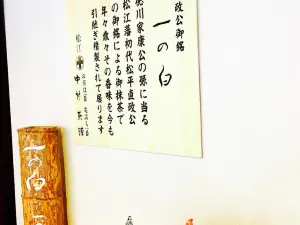 政公御銘
一の白
徳川家康公の孫に当る
松江藩初代松平直政公
の御銘による御抹茶で
年々歳々その香味を今も
引継ぎ精製されて居ります
松江
中村茶舗
一の白